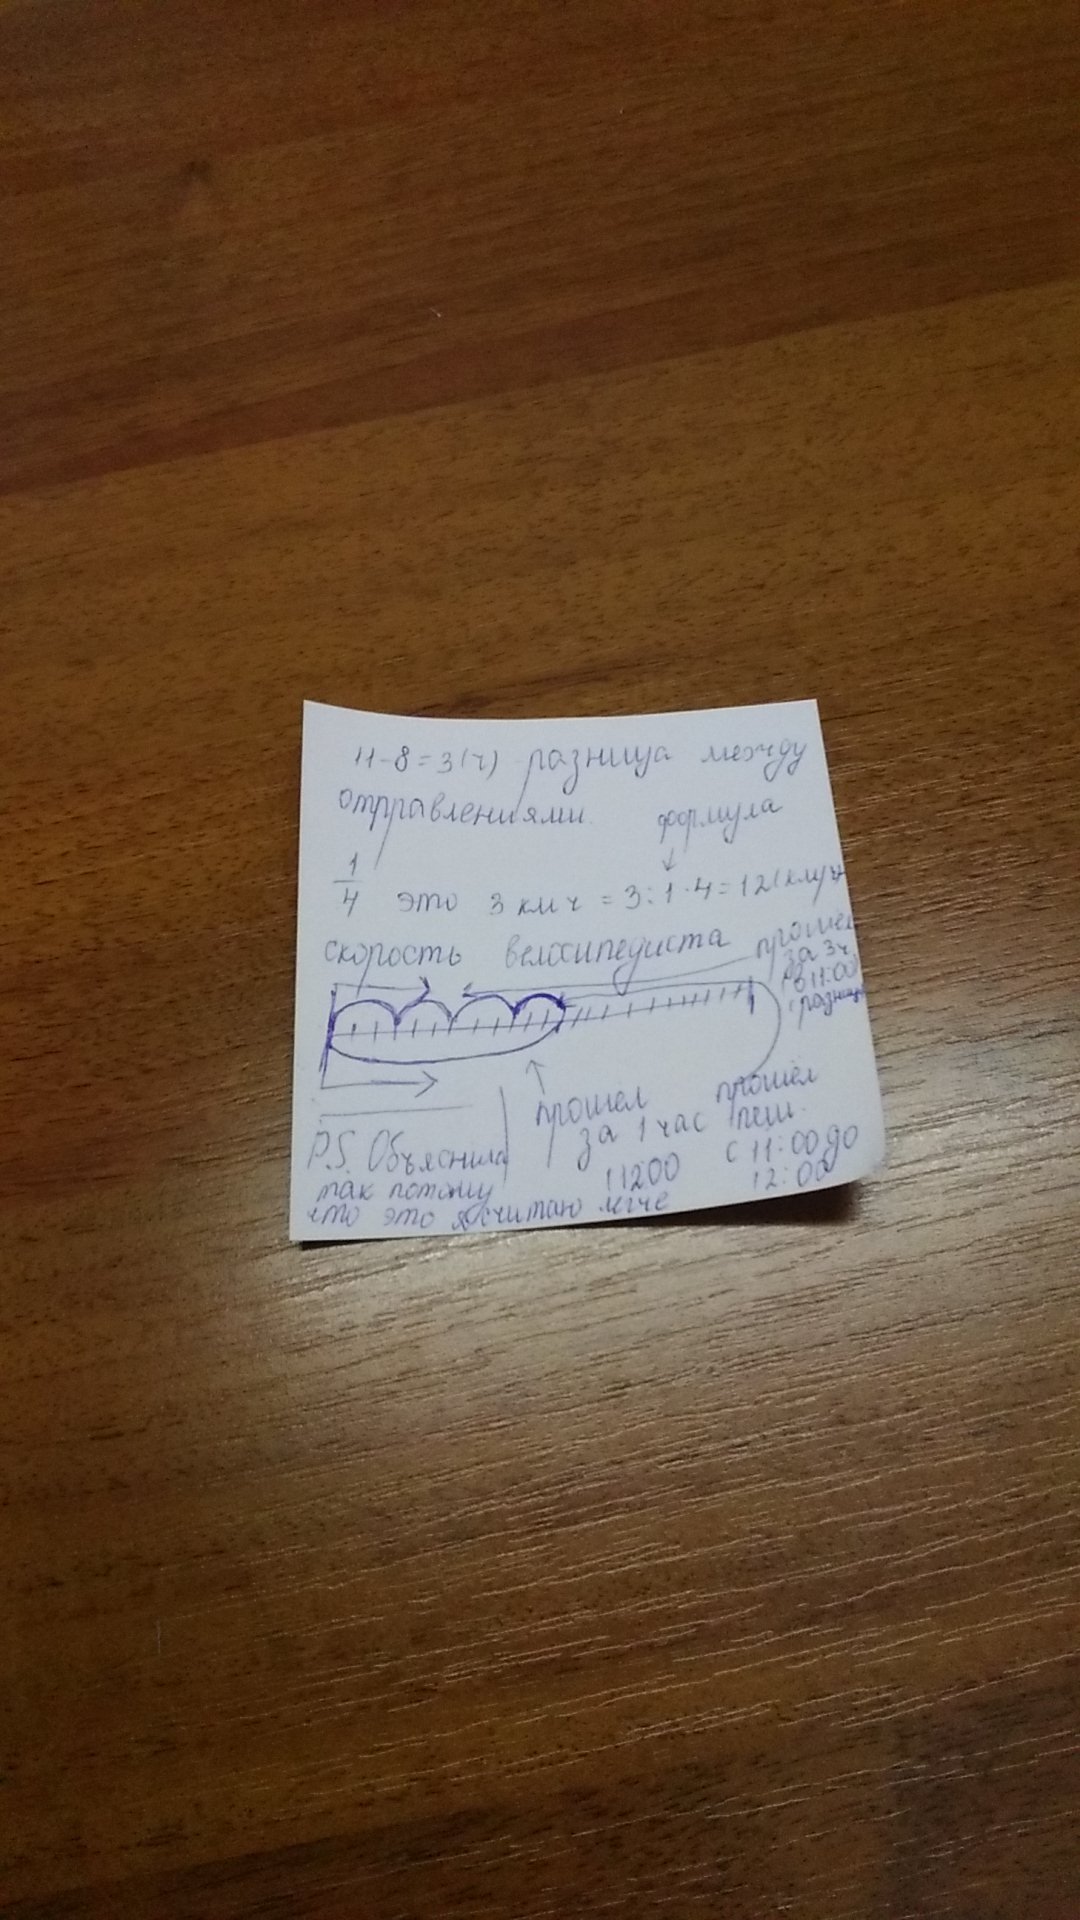 11-8=3(ч) разница между
отправлениями.
формула
1/4 это 3 км ч = 3:1·4=12(км/ч)
скорость велосипедиста
прошел
за 3ч
в 11:00
(разница
прошел
за 1 час
11200
прошел
пеш.
с 11:00 до
12:00
P.S. Объяснила
так потому
что это я считаю легче